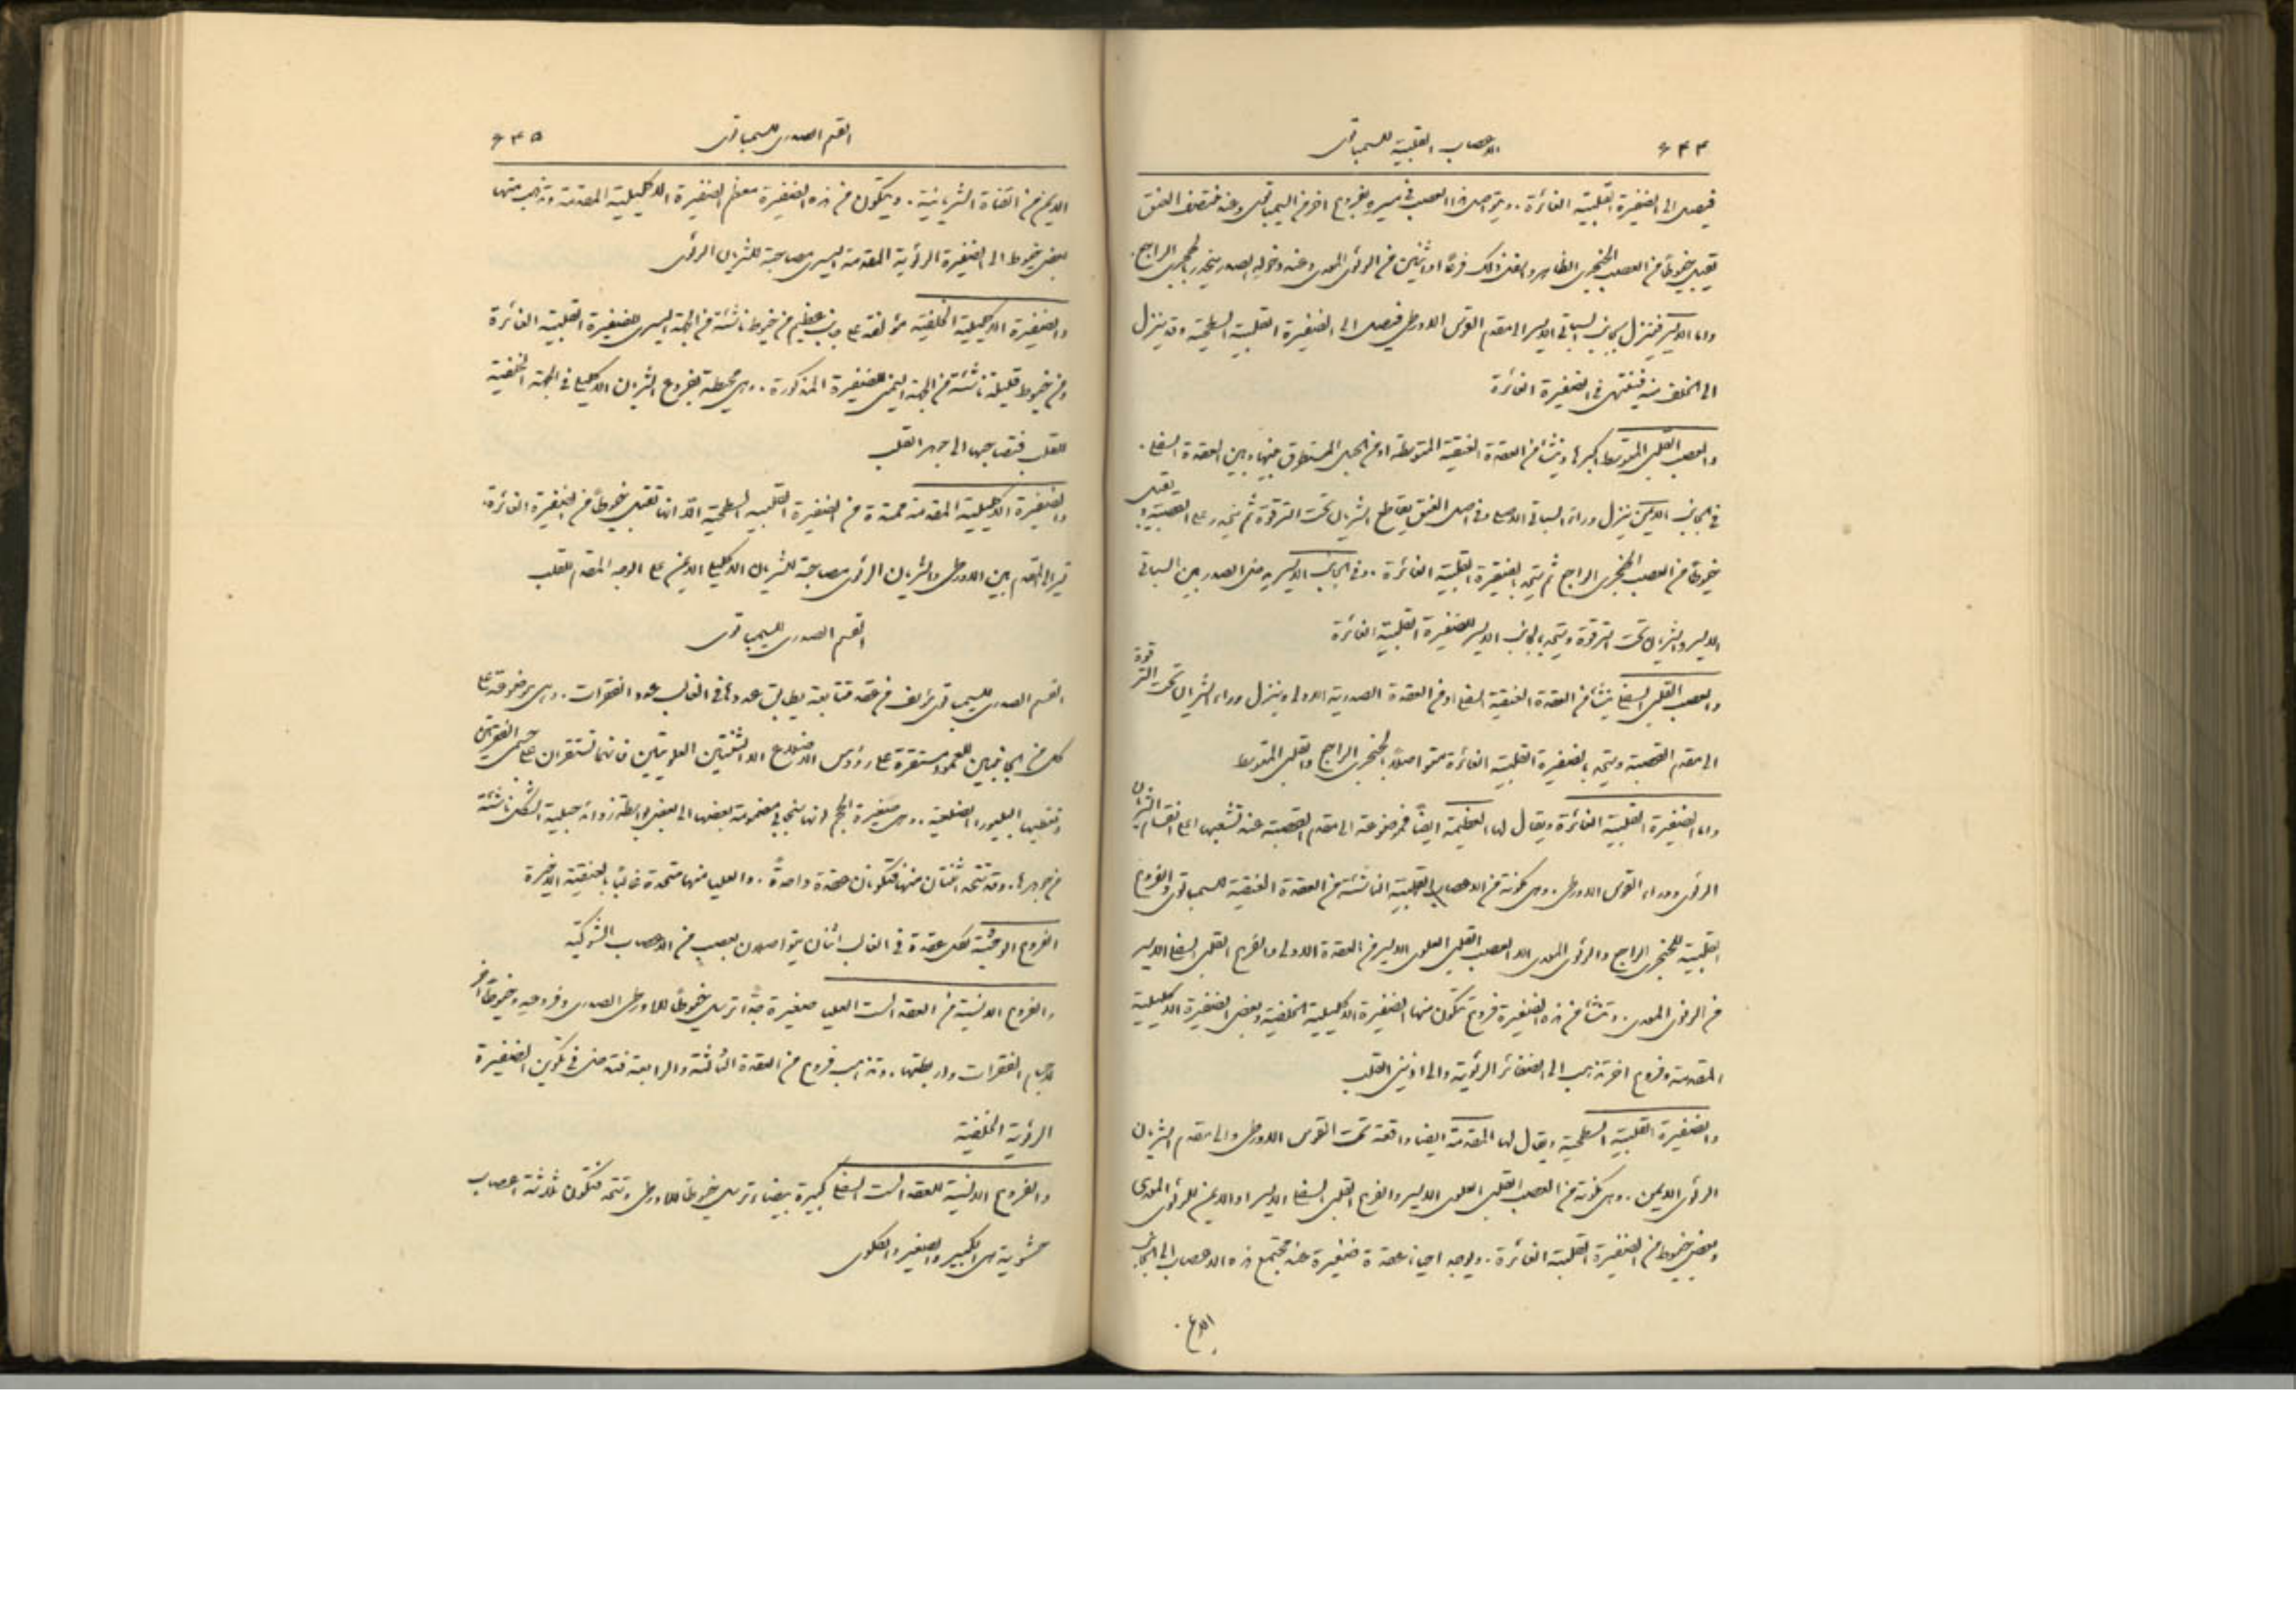 ٦٤٤
الاعصاب القلبية للسمباتوي
فيصل الى الضفيرة القلبية الغائرة. ويتواصل هذا العصب في سيره بفروع اخر من السمباتوي وعند منتصف العنق
يقبل خيوطًا من العصب الحنجري الظاهر واسفل ذلك فرعًا او اثنين من الرئوي المعدي وعند دخوله الصدر بالحنجري الراجع.
واما الايسر فينزل بجانب السباتي الايسر الى مقدم القوس الاورطي فيصل الى الضفيرة القلبية السطحية وقد ينزل
الى الخلف منه فينتهي في الضفيرة الغائرة
والعصب القلبي المتوسط اكبرها وينشأ من العقدة العنقية المتوسطة او من الحبل المستطرق بينها وبين العقدة السفلى.
في الجانب الايمن ينزل وراء السباتي الاصلي وفي اصل العنق يقاطع الشريان تحت الترقوة ثم ينحدر على القصبة ويقبل
خيوطًا من العصب الحنجري الراجع ثم يتحد بالضفيرة القلبية الغائرة. وفي الجانب الايسر يدخل الصدر بين السباتي
الايسر والشريان تحت الترقوة ويتحد بالجانب الايسر للضفيرة القلبية الغائرة
والعصب القلبي السفلي ينشأ من العقدة العنقية السفلى او من العقدة الصدرية الاولى وينزل وراء الشريان تحت الترقوة
الى مقدم القصبة ويتحد بالضفيرة القلبية الغائرة متواصلًا بالحنجري الراجع والقلبي المتوسط
واما الضفيرة القلبية الغائرة ويقال لها العظيمة ايضًا فموضوعة الى مقدم القصبة عند تشعبها اعلى انقسام الشريان
الرئوي ووراء القوس الاورطي. وهي مكونة من الاعصاب القلبية الناشئة من العقدة العنقية للسمباتوي والفروع
القلبية للحنجري الراجع والرئوي المعدي الا العصب القلبي العلوي الايسر من العقدة الاولى والفرع القلبي السفلي الايسر
من الرئوي المعدي. وتنشأ من هذه الضفيرة فروع تتكون منها الضفيرة الاكليلية الخلفية وبعض الضفيرة الاكليلية
المقدمة وفروع اخر تذهب الى الضفائر الرئوية والى اذيني القلب
والضفيرة القلبية السطحية ويقال لها المقدمة ايضا واقعة تحت القوس الاورطي والى مقدم الشريان
الرئوي الايمن. وهي مكونة من العصب القلبي العلوي الايسر والفرع القلبي السفلي الايسر او الايمن للرئوي المعدي
وبعض خيوط من الضفيرة القلبية الغائرة. ويوجد احيانًا عقدة صغيرة عند مجتمع هذه الاعصاب الى الجانب
القسم الصدري للسمباتوي
٦٤٥
الايمن من القناة الشريانية. ويتكون من هذه الضفيرة معظم الضفيرة الاكليلية المقدمة وتذهب منها
بعض خيوط الى الضفيرة الرئوية المقدمة اليسرى مصاحبة للشريان الرئوي
والضفيرة الاكليلية الخلفية مؤلفة على جانب عظيم من خيوط ناشئة من الجهة اليسرى للضفيرة القلبية الغائرة
ومن خيوط قليلة ناشئة من الجهة اليمنى للضفيرة المذكورة. وهي محيطة بفروع الشريان الاكليلي في الجهة الخلفية
للقلب فتصاحبها الى جوهر القلب
والضفيرة الاكليلية المقدمة ممتدة من الضفيرة القلبية السطحية الا انها تقبل خيوطًا من الضفيرة الغائرة.
تمر الى المقدم بين الاورطي والشريان الرئوي مصاحبة للشريان الاكليلي الايمن على الوجه المقدم للقلب
القسم الصدري للسمباتوي
القسم الصدري للسمباتوي يتالف من عقد متتابعة يطابق عددها في الغالب عدد الفقرات. وهي موضوعة على
كل من الجانبين للعمود مستقرة على رؤوس الاضلاع الا الثنتين العلويتين فانهما تستقران على جسمي الفقرتين
وتغطيها البليورا الضلعية. وهي صغيرة الحجم سنجابية مضمومة بعضها الى بعض بواسطة زوائد حبلية الشكل ناشئة
من جوهرها. وقد تتحد اثنتان منها فتكونان عقدة واحدةً. والعليا منها متحدة غالبًا بالعنقية الاخيرة
الفروع الوحشية لكل عقدة في الغالب اثنان يتواصلان بعصب من الاعصاب الشوكية
والفروع الانسية من العقد الست العليا صغيرة جدًا ترسل خيوطًا للاورطي الصدري وفروعه وخيوطًا اخر
لاجسام الفقرات واربطتها. وتذهب فروع من العقدة الثالثة والرابعة فتدخل في تكوين الضفيرة
الرئوية الخلفية
والفروع الانسية للعقد الست السفلى كبيرة بيضاء وترسل خيوطًا للاورطي وتتحد فتكون ثلاثة اعصاب
حشوية هي الكبير والصغير والكلوي